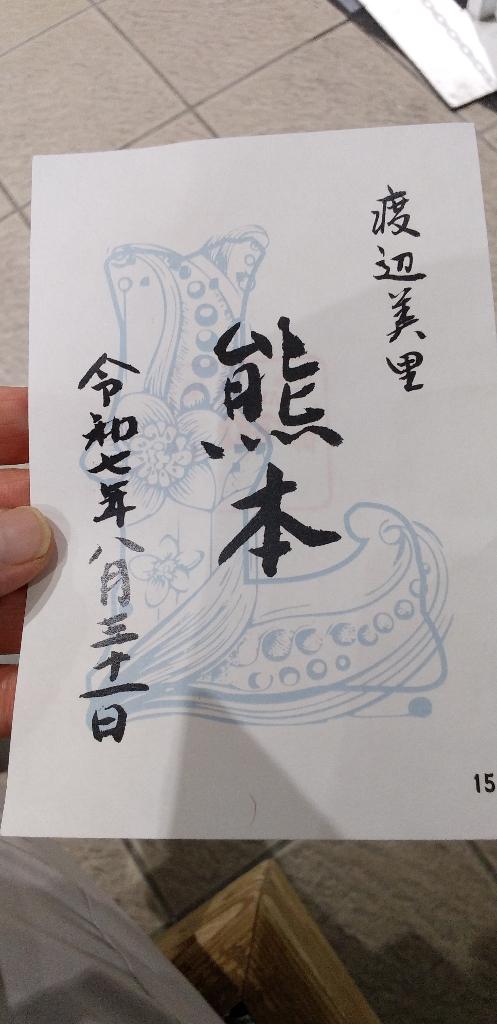 渡辺美里
熊本
令和七年八月三十一日
15